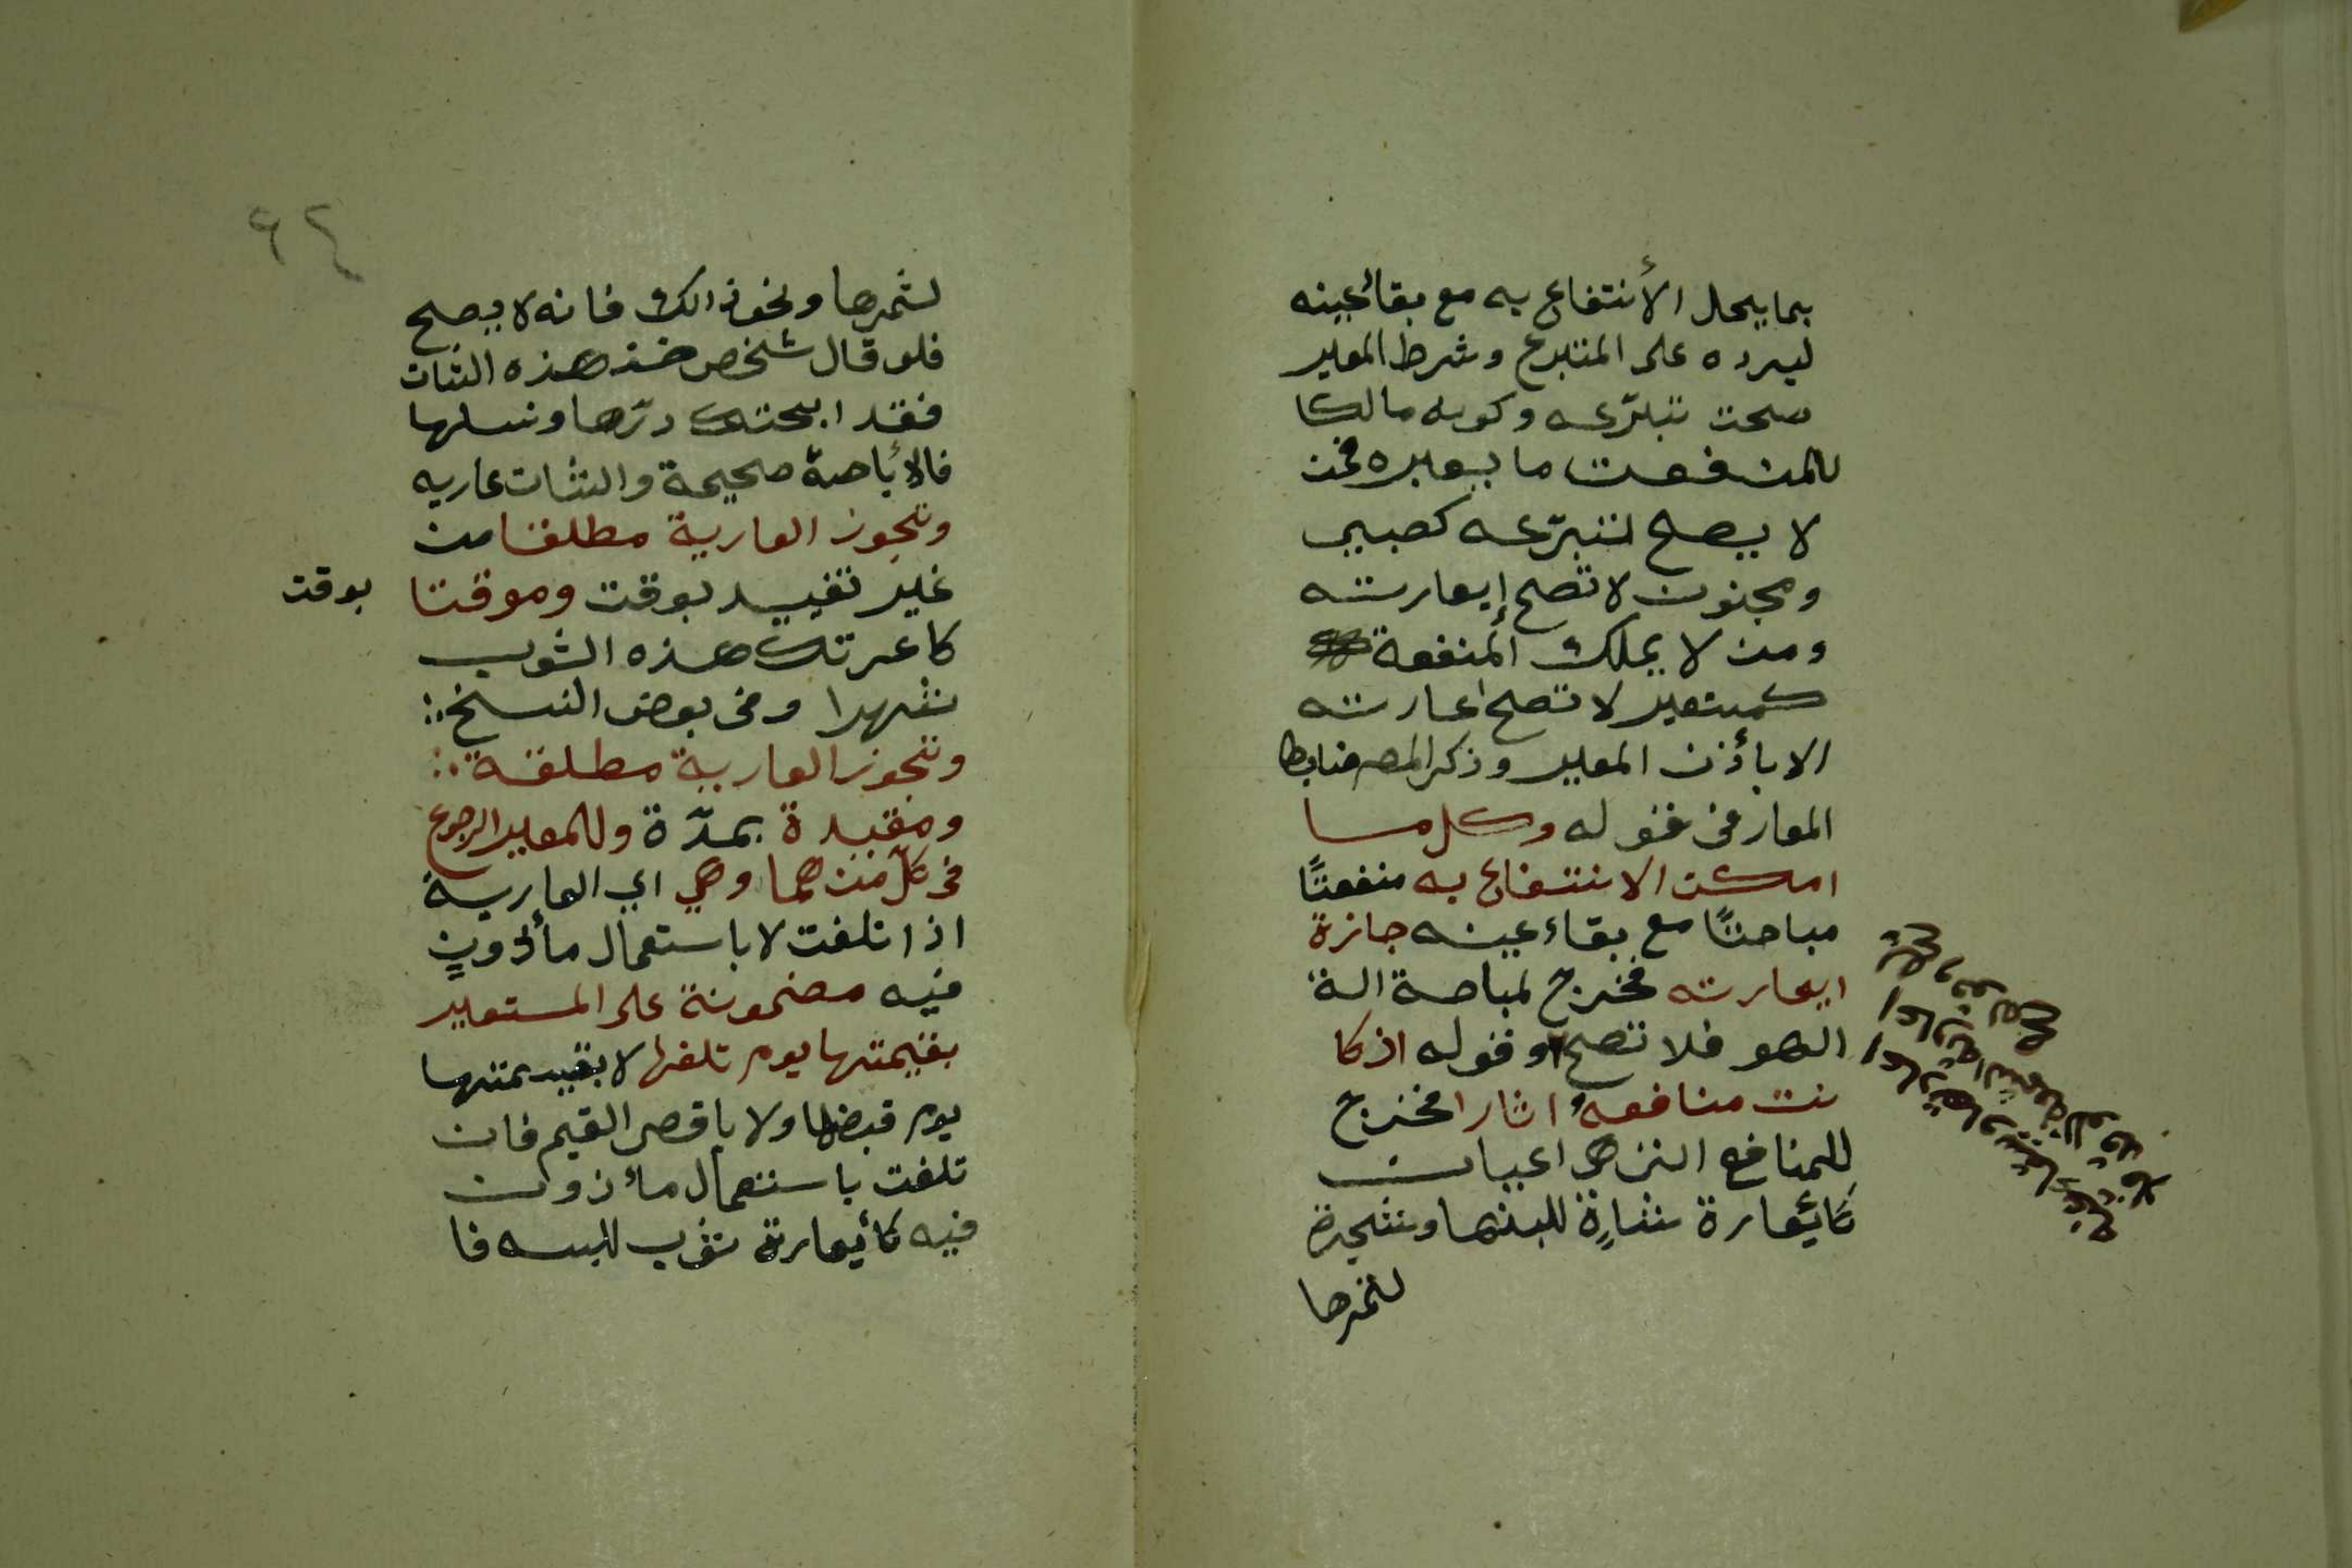 بما يحل الأنتفاع به مع بقائعينه
ليرده على المتبرع وشرط المعير
صحت تبرّعه وكونه مالكا
للمنفعت ما يعيره فمن
لا يصح لتبرّعه كصبي
ومجنون لا تصح إيعارته
ومن لا يملك المنفعة
كمستعير لا تصح اعارته
الا بأذن المعير وذكر المصر ضابط
المعار في قوله وكل ما
امكن الانتفاع به منفعتًا
مباحتًا مع بقاء عينه جائزة
ايعارته فخرج لمباحة الة
اللهو فلا تصح وقوله اذ كا
نت منافعه اثارا فخرج
للمنافع التي هي اعيان
كائيعارة شاةٍ للبنها وشجرة
لثمرها
٦٢
لثمرها ونحو ذالك فانه لا يصح
فلو قال شخص خذ هذه الشات
فقد ابحتك درّها ونسلها
فالائباحة صحيحة والشات عاريه
وتجوز العارية مطلقا من
غير تقييد بوقت وموقتا
بوقت
كاعرتك هذه الثوب
شهرا وفي بعض النسخ
وتجوز العارية مطلقة
ومقيدة بمدّة وللمعير الرجوع
في كلّ منهما وهي اي العارية
اذا تلفت لا باستعمال مأذونٍ
فيه مضمونة على المستعير
بقيمتها يوم تلفها لا بقيمتها
يوم قبضها ولا باقصى القيم فان
تلفت باستعمال مأذون
فيه كائيعارة ثوب للبسه فا